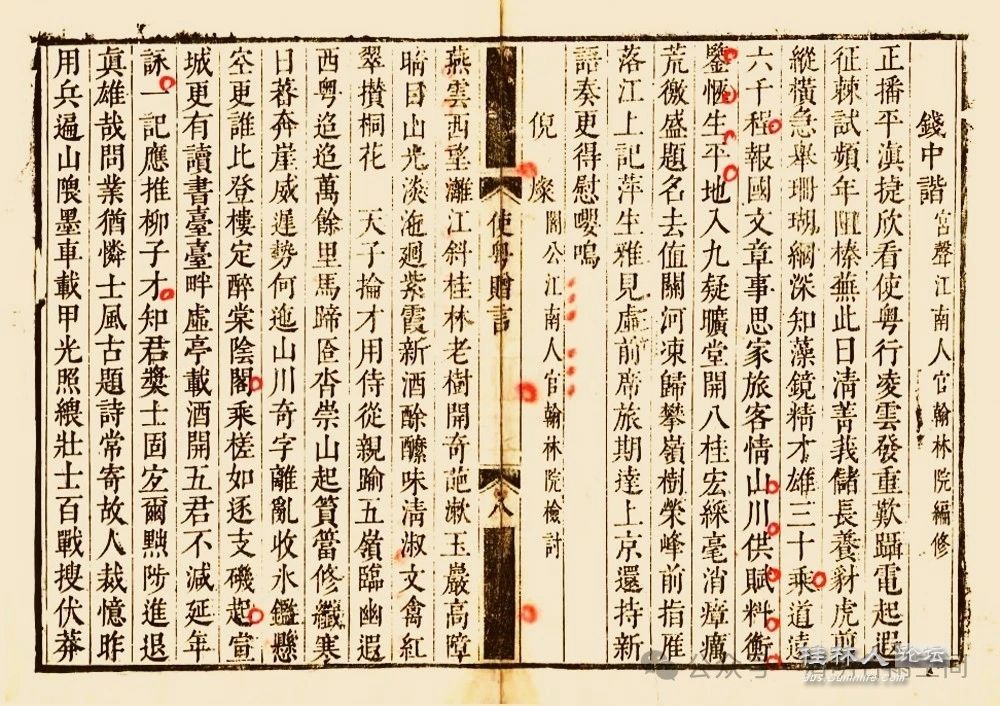 錢中諧 宮聲江南人官翰林院編修
正播平滇捷欣看使粤行凌雲發重歎躡電起遐
征棘試頻年阻榛蕪此日清菁莪儲長養豺虎前
縱橫急舉珊瑚網深知藻鏡精才雄三十乘道遠
六千程報國文章事思家旅客情山川供賦料衡
鑒愜生平地入九疑曠堂開八桂宏綵毫消瘴癘
荒徼盛題名去值關河凍歸攀嶺樹榮峰前指雁
落江上記萍生雅見虛前席旅期達上京還持新
語奏更得慰嚶鳴
倪 燦 闇公江南人官翰林院檢討
使粤贈言 八
燕雲西望灕江斜桂林老樹開奇葩漱玉巖高障
暘目山光淡沲廻紫霞新酒酴醾味清淑文禽紅
翠攅桐花 天子掄才用侍從親踰五嶺臨幽遐
西粤迢迢萬餘里馬蹄𠯗沓崇山起篔簹修纖寒
日暮奔崖威遲勢何迤山川奇字離亂收氷鑑懸
空更誰比登樓定醉棠陰閣乘槎如逐支磯起宣
城更有讀書臺臺畔虛亭載酒開五君不減延年
詠一記應推柳子才知君奬士固宏爾黜陟進退
眞雄哉問業猶憐士風古題詩常寄故人裁憶昨
用兵遍山隈墨車載甲光照縗壯士百戰搜伏莽
桂林人论坛
bbs.Guilinlife.com
公众号